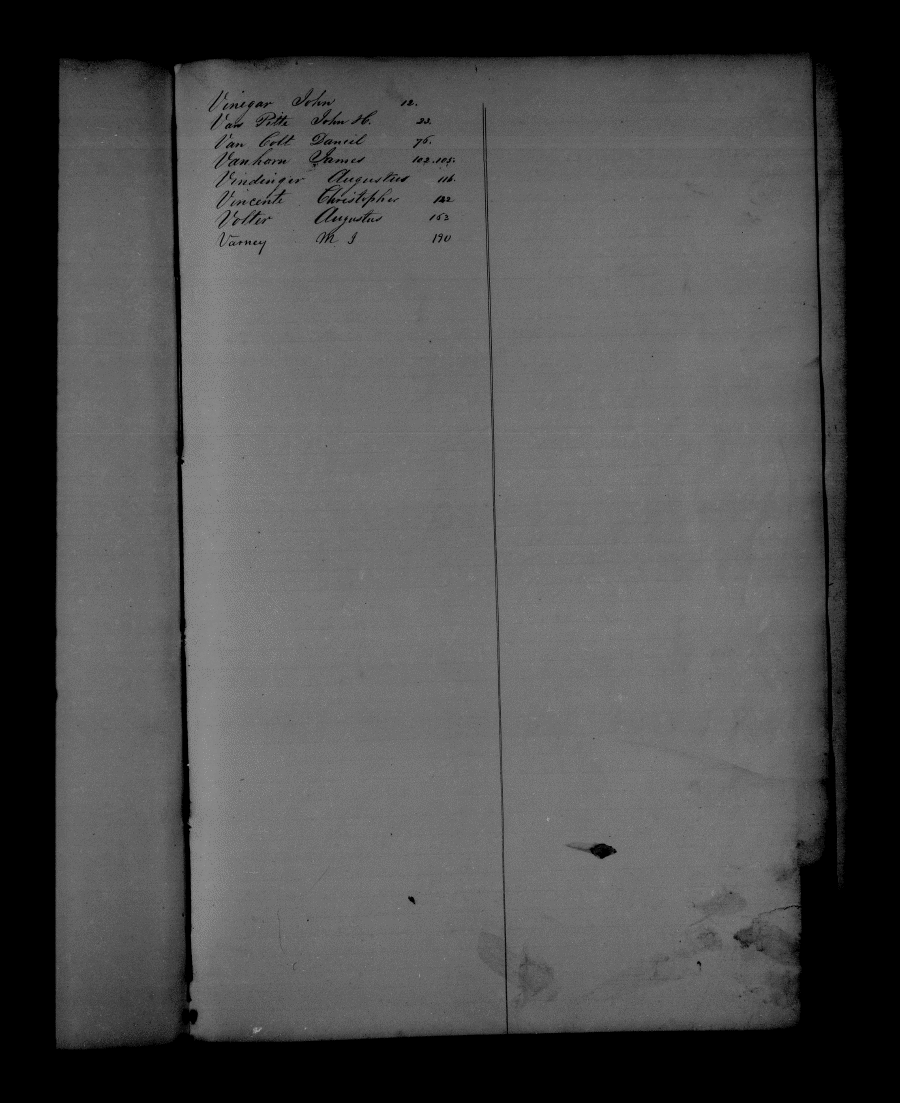 Vinegar John 12.
Van Pitte John H. 22.
Van Colt Daniel 76.
Vanhorn James 102.105.
Vindinger Augustus 116.
Vincente Christopher 122
Volter Augustus 152
Varney M I 190